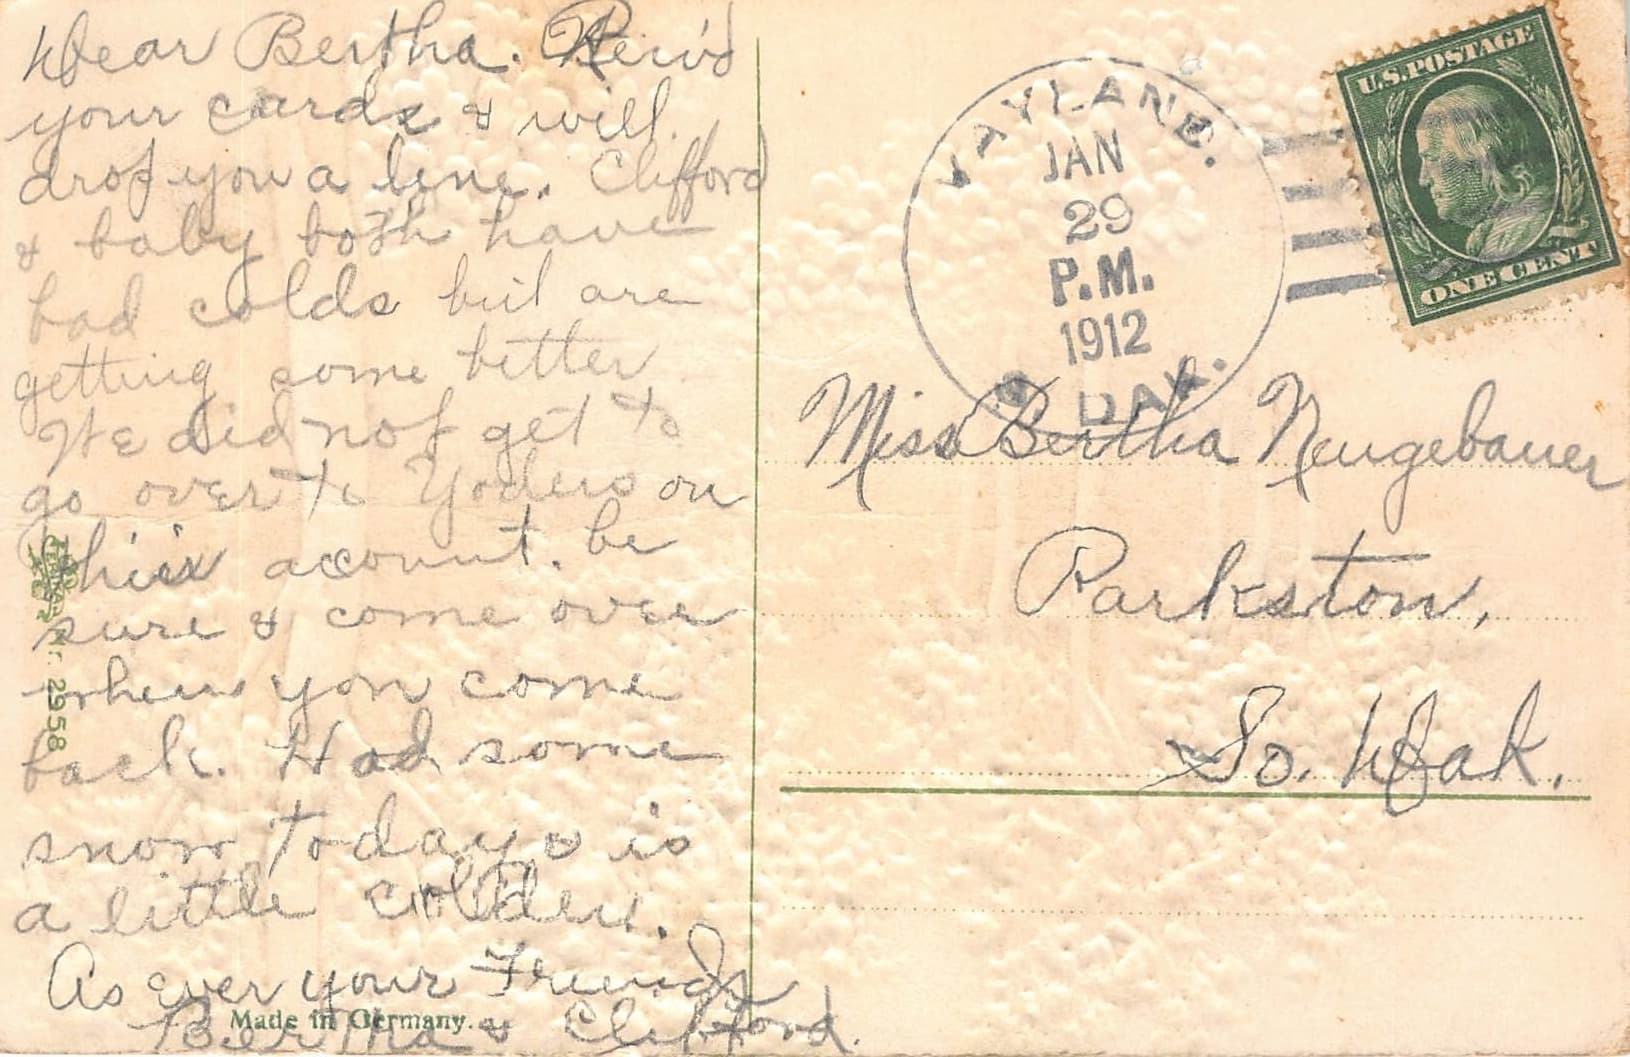 Dear Bertha. Reciv'd
your cards & will
drop you a line. Clifford
& baby both have
bad colds but are
getting some better
We did not get to
go over to Yoders on
this account. be
sure & come over
when you come
back. Had some
snow today & is
a little colder.
As ever your Friends
Bertha & Clifford.
Made in Germany.
Nr. 2958
VAYLAND.
JAN
29
P.M.
1912
DAK.
U.S. POSTAGE
ONE CENT
Miss Bertha Neugebauer
Parkston,
So. Dak.